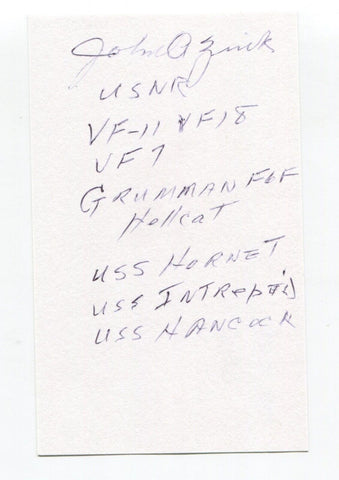 John A Zink
USNR
VF-11 VF18
VF7
GRUMMAN F6F
Hellcat
USS HORNET
USS INTRepid
USS HANCOCK